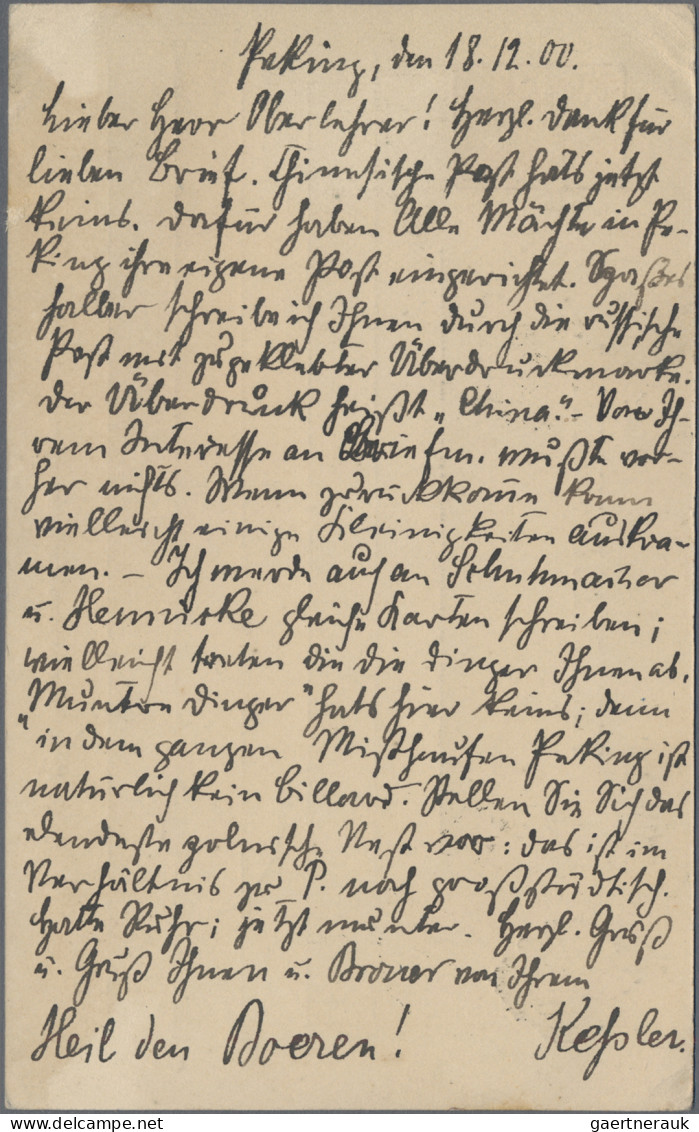 Peking, den 18.12.00.
Lieber Herr Oberlehrer! Herzl. Dank für
lieben Brief. Chinesische Post hats jetzt
keins. Dafür haben Alle Mächte in Pe-
king ihre eigene Post eingerichtet. Spaßes
halber schreibe ich Ihnen durch die russische
Post mit zugeklebter Überdruckmarke.
Der Überdruck heißt „China". - Von Ih-
rem Interesse an Briefm. wußte vor-
her nichts. Wenn zurückkomme kann
vielleicht einige Kleinigkeiten auskra-
men. - Ich werde auch an Schuhmacher
u. Hennicke gleiche Karten schreiben;
vielleicht treten die die Dinger Ihnen ab.
Muntre Dinger" hats hier keins; denn
"in dem ganzen Misthaufen Peking ist
natürlich kein Billard. Stellen Sie Sich das
elendeste polnische Nest vor: das ist im
Verhältnis zu P. noch großstädtisch.
Hatte Ruhr; jetzt munter. Herzl. Gruß
u. Gruß Ihnen u. von Ihrem
Heil den Boeren! Keßler.
gaertnerauk